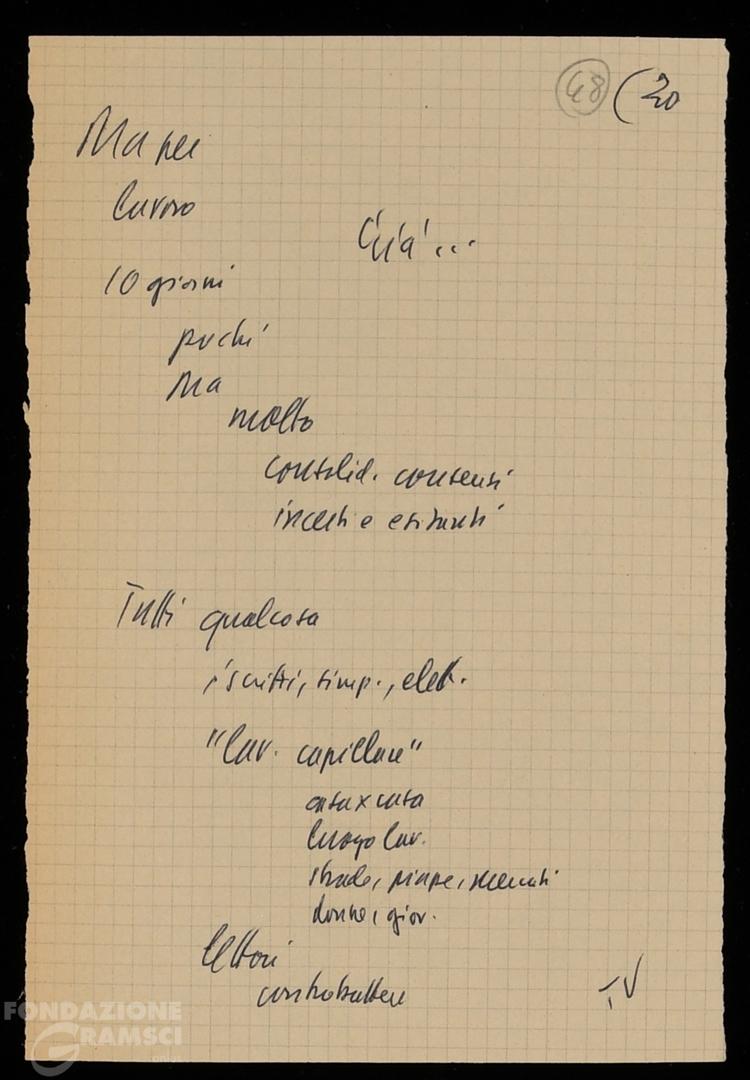 48 (20
Ma nei
lavoro
Già...
10 giorni
pochi
Ma
molto
consolid. consensi
incerti e esitanti
Tutti qualcosa
iscritti, simp., elett.
"lav. capillare"
casa x casa
luogo lav.
strade, piazze, mercati
donne, giov.
controbattere
TV
FONDAZIONE
GRAMSCI
onlus